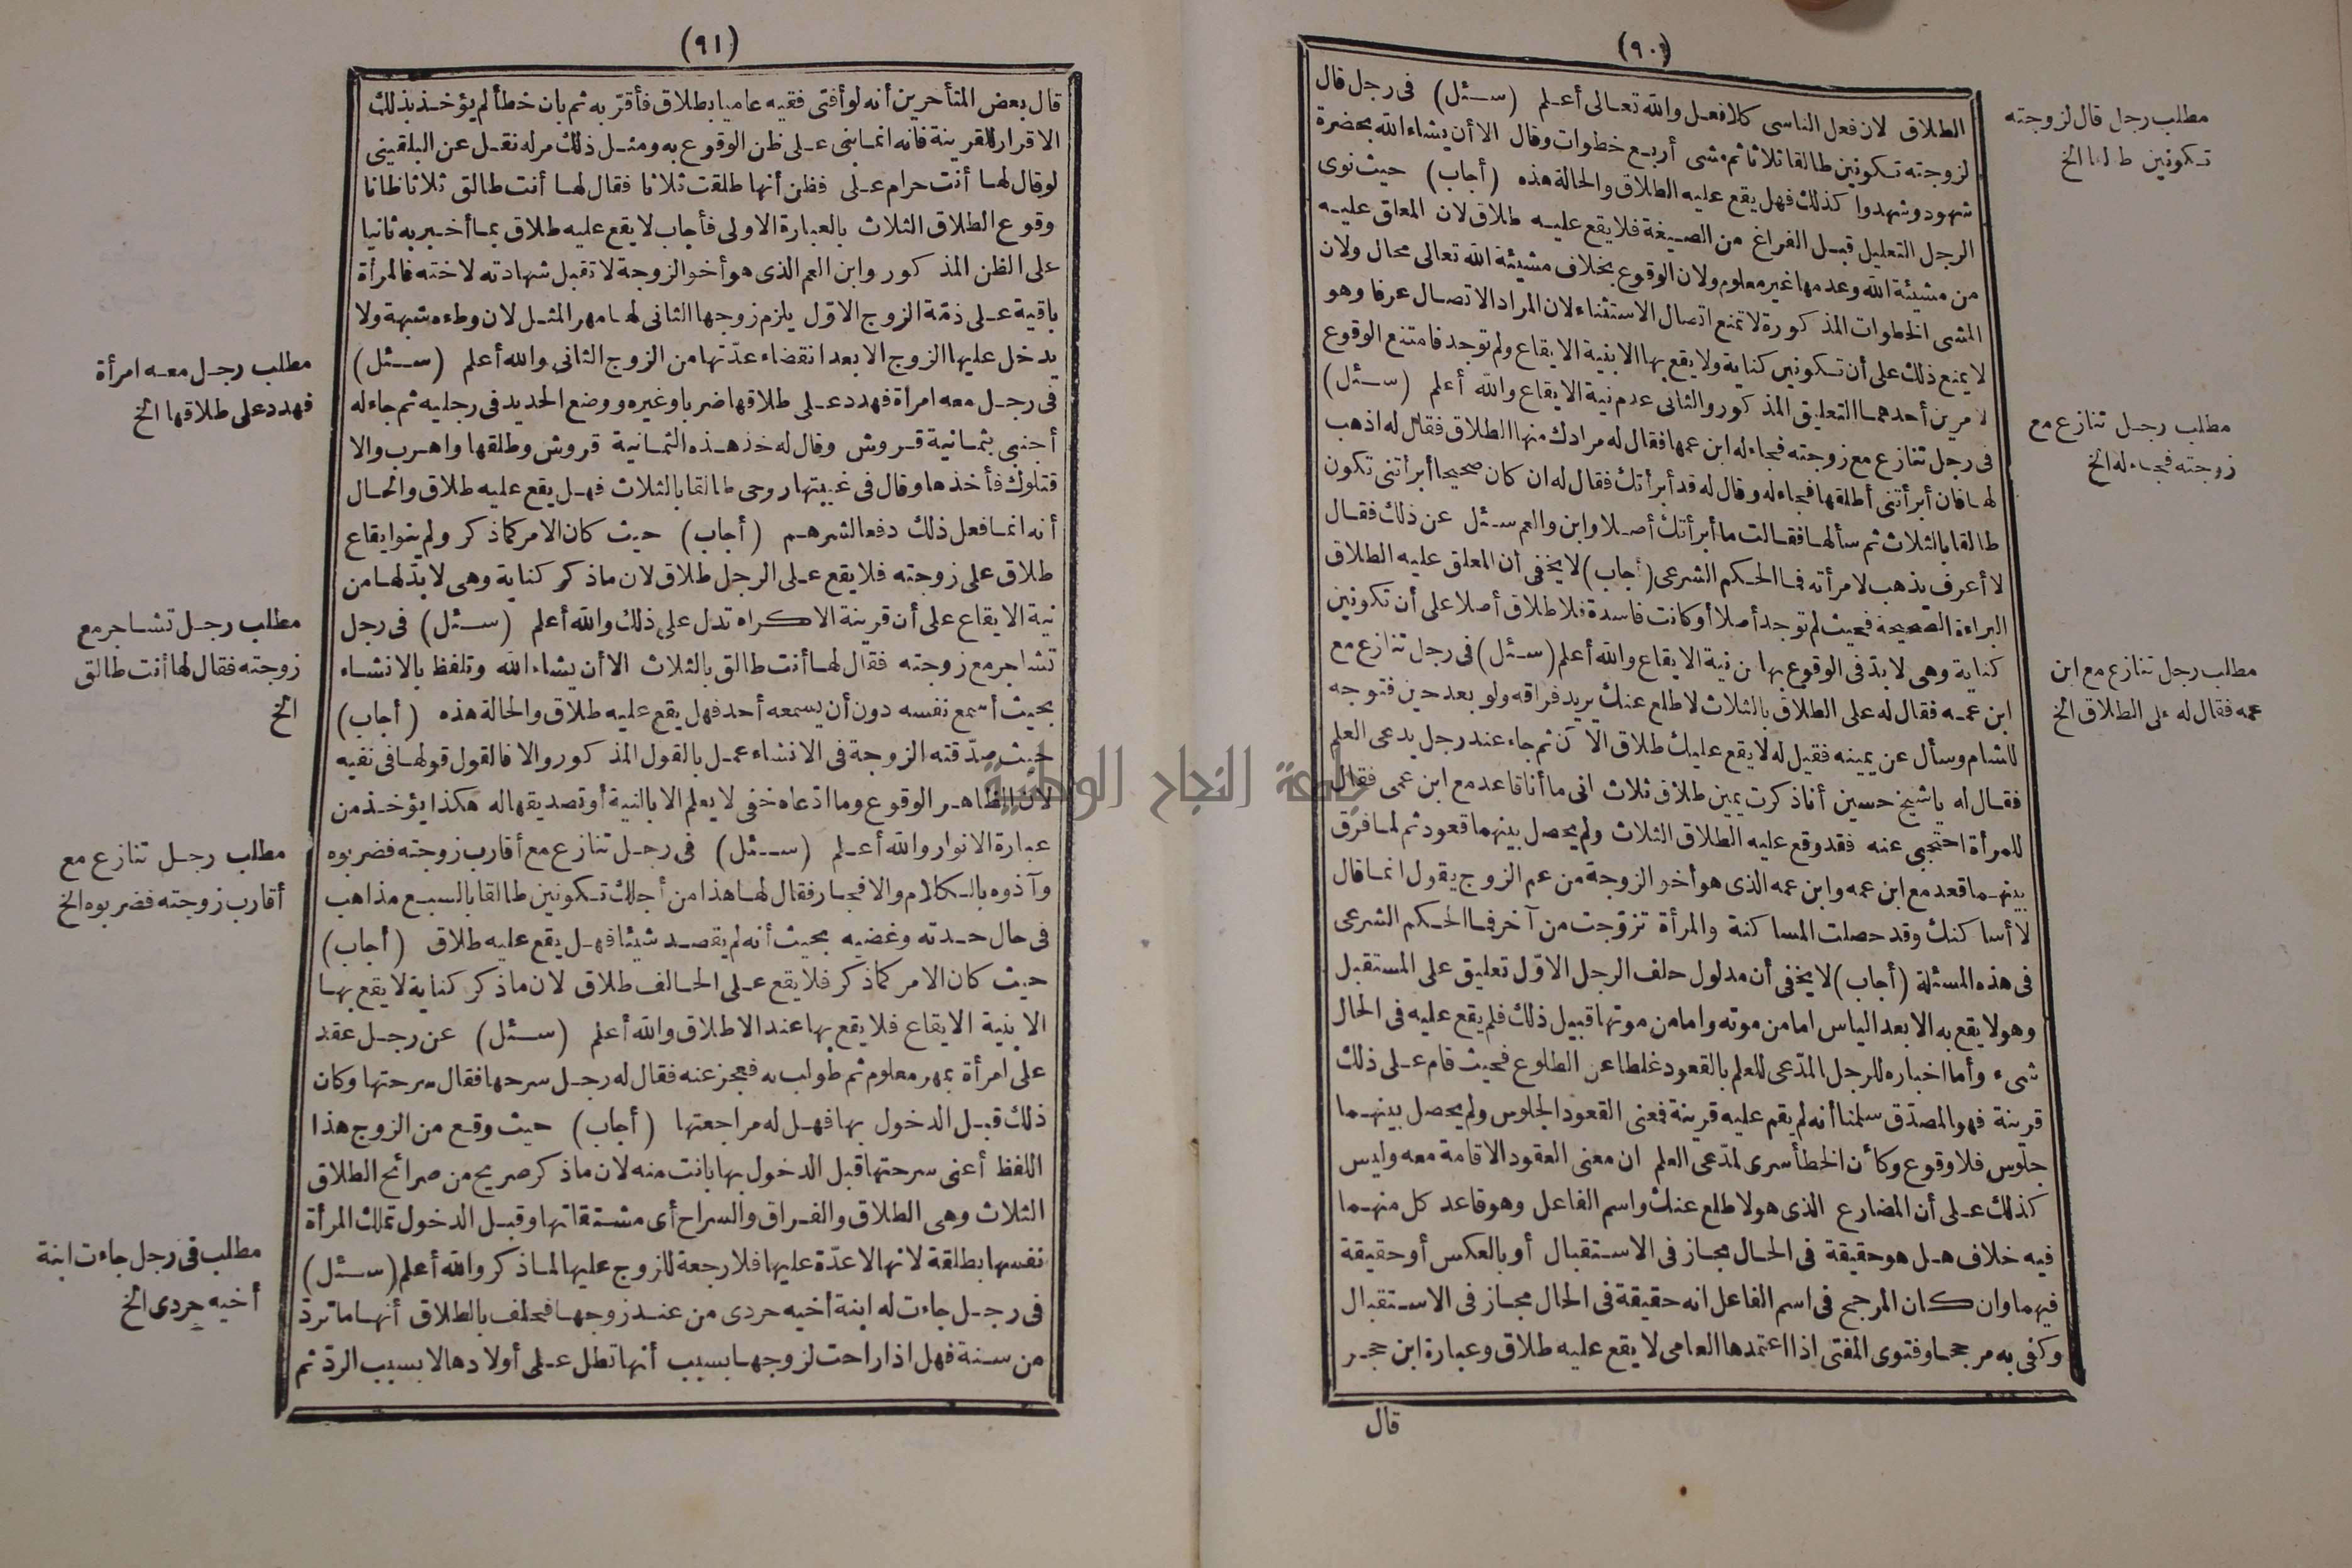 (٩٠)
الطلاق لان فعل الناسى كلا فعل والله تعالى أعلم (سئل) فى رجل قال
لزوجته تكونين طالقا ثلاثا ثم مشى أربع خطوات وقال الا أن يشاء الله بحضرة
شهود وشهدوا كذلك فهل يقع عليه الطلاق والحالة هذه (أجاب) حيث نوى
الرجل التعليل قبل الفراغ من الصيغة فلا يقع عليه طلاق لان المعلق عليه
من مشيئة الله وعدمها غير معلوم ولان الوقوع بخلاف مشيئة الله تعالى محال ولان
المشى الخطوات المذكورة لا تمنع اتصال الاستثناء لان المراد الاتصال عرفا وهو
لا يمنع ذلك على أن تكونين كناية ولا يقع بها الا بنية الايقاع ولم توجد فامتنع الوقوع
لامرين أحدهما التعليق المذكور والثانى عدم نية الايقاع والله أعلم (سئل)
فى رجل تنازع مع زوجته فجاء له ابن عمها فقال له مرادك منها الطلاق فقال له اذهب
لها فان أبرأتنى أطلقها فجاء له وقال له قد أبرأتك فقال له ان كان صحيحا أبرأتنى تكون
طالقا بالثلاث ثم سألها فقالت ما أبرأتك أصلا وابن والعم سئل عن ذلك فقال
لا أعرف يذهب لامرأته فما الحكم الشرعى (أجاب) لا يخفى أن المعلق عليه الطلاق
البراءة الصحيحة فحيث لم توجد أصلا أو كانت فاسدة فلا طلاق أصلا على أن تكونين
كناية وهى لا بد فى الوقوع بها من نية الايقاع والله أعلم (سئل) فى رجل تنازع مع
ابن عمه فقال له على الطلاق بالثلاث لاطلع عنك يريد فراقه ولو بعد حين فتوجه
للشام وسأل عن يمينه فقيل له لا يقع عليك طلاق الآن ثم جاء عند رجل يدعى العلم
فقال له يا شيخ حسين أنا ذكرت يمين طلاق ثلاث انى ما أنا قاعد مع ابن عمى فقال
للمرأة احتجبى عنه فقد وقع عليه الطلاق الثلاث ولم يحصل بينهما قعود ثم لما فرق
بينهما قعد مع ابن عمه وابن عمه الذى هو أخو الزوجة من عم الزوج يقول انما قال
لا أسا كنك وقد حصلت المساكنة والمرأة تزوّجت من آخر فما الحكم الشرعى
فى هذه المسئلة (أجاب) لا يخفى أن مدلول حلف الرجل الاوّل تعليق على المستقبل
وهو لا يقع به الا بعد الياس اما من موته واما من موتها قبيل ذلك فلم يقع عليه فى الحال
شىء وأما اخباره للرجل المدّعى للعلم بالقعود غلطا عن الطلوع فحيث قام على ذلك
قرينة فهو المصدّق سلمنا أنه لم يقم عليه قرينة فمعنى القعود الجلوس ولم يحصل بينهما
جلوس فلا وقوع وكأن الخطأ سرى لمدّعى العلم ان معنى العقود الاقامة معه وليس
كذلك على أن المضارع الذى هو لاطلع عنك واسم الفاعل وهو قاعد كل منهما
فيه خلاف هل هو حقيقة فى الحال مجاز فى الاستقبال أو بالعكس أو حقيقة
فيهما وان كان المرجح فى اسم الفاعل انه حقيقة فى الحال مجاز فى الاستقبال
وكفى به مرجحا وفتوى المفتى اذا اعتمدها العامى لا يقع عليه طلاق وعبارة ابن حجر
قال
مطلب رجل قال لزوجته
تكونين طالقا الخ
مطلب رجل تنازع مع
زوجته فجاء له الخ
مطلب رجل تنازع مع ابن
عمه فقال له على الطلاق الخ
(٩١)
قال بعض المتأخرين أنه لو أفتى فقيه عاميا بطلاق فأقرّ به ثم بان خطأ لم يؤخذ بذلك
الاقرار للقرينة فانه انما بنى على ظن الوقوع به ومثل ذلك مر له نقل عن البلقينى
لو قال لها أنت حرام على فظن أنها طلقت ثلاثا فقال لها أنت طالق ثلاثا ظانا
وقوع الطلاق الثلاث بالعبارة الاولى فأجاب لا يقع عليه طلاق بما أخبر به ثانيا
على الظن المذكور وابن العم الذى هو أخو الزوجة لا تقبل شهادته لاخته فالمرأة
باقية على ذمّة الزوج الاوّل يلزم زوجها الثانى لها مهر المثل لان وطءه شبهة ولا
يدخل عليها الزوج الا بعد انقضاء عدّتها من الزوج الثانى والله أعلم (سئل)
فى رجل معه امرأة فهدد على طلاقها ضربا وغيره ووضع الحديد فى رجليه ثم جاء له
أجنبى بثمانية قروش وقال له خذ هذه الثمانية قروش وطلقها واهرب والا
قتلوك فأخذها وقال فى غيبتها روحى طالقا بالثلاث فهل يقع عليه طلاق والحال
أنه انما فعل ذلك دفعا لشرهم (أجاب) حيث كان الامر كما ذكر ولم ينوايقاع
طلاق على زوجته فلا يقع على الرجل طلاق لان ما ذكر كناية وهى لا بدّ لها من
نية الايقاع على أن قرينة الاكراه تدل على ذلك والله أعلم (سئل) فى رجل
تشاجر مع زوجته فقال لها أنت طالق بالثلاث الا أن يشاء الله وتلفظ بالانشاء
بحيث أسمع نفسه دون أن يسمعه أحد فهل يقع عليه طلاق والحالة هذه (أجاب)
حيث صدّقته الزوجة فى الانشاء عمل بالقول المذكور والا فالقول قولها فى نفيه
لان الظاهر الوقوع وما ادّعاه خفى لا يعلم الا بالنية أو تصديقها له هكذا يؤخذ من
عبارة الانوار والله أعلم (سئل) فى رجل تنازع مع أقارب زوجته فضربوه
وآذوه بالكلام والا فجار فقال لها هذا من أجلك تكونين طالقا بالسبع مذاهب
فى حال حدته وغضبه بحيث أنه لم يقصد شيئا فهل يقع عليه طلاق (أجاب)
حيث كان الامر كما ذكر فلا يقع على الحالف طلاق لان ما ذكر كناية لا يقع بها
الا بنية الايقاع فلا يقع بها عند الاطلاق والله أعلم (سئل) عن رجل عقد
على امرأة بمهر معلوم ثم طولب به فعجز عنه فقال له رجل سرحها فقال سرحتها وكان
ذلك قبل الدخول بها فهل له مراجعتها (أجاب) حيث وقع من الزوج هذا
اللفظ أعنى سرحتها قبل الدخول بها بانت منه لان ما ذكر صريح من صرائح الطلاق
الثلاث وهى الطلاق والفراق والسراح أى مشتقاتها وقبل الدخول تملك المرأة
نفسها بطلقة لانها لا عدّة عليها فلا رجعة للزوج عليها لما ذكر والله أعلم (سئل)
فى رجل جاءت له ابنة أخيه حردى من عند زوجها فحلف بالطلاق أنها ما تردّ
من سنة فهل اذا راحت لزوجها بسبب أنها تطل على أولادها لا بسبب الردّ ثم
مطلب رجل معه امرأة
فهدد على طلاقها الخ
مطلب رجل تشاجر مع
زوجته فقال لها أنت طالق
الخ
مطلب رجل تنازع مع
أقارب زوجته فضربوه الخ
مطلب فى رجل جاءت ابنة
أخيه حردى الخ
جامعة النجاح الوطنية